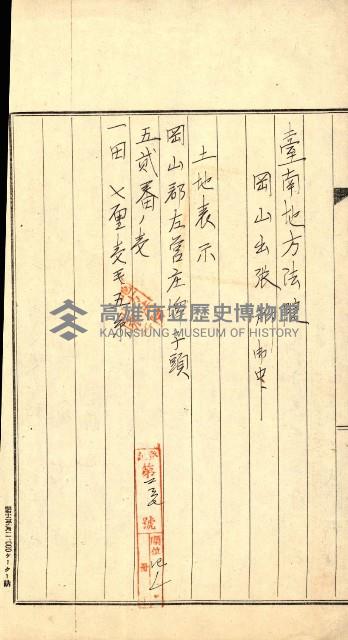 臺南地方法院
岡山出張所 御中
土地表示
岡山郡左營庄埤子頭
五貳番ノ壹
一田 七厘壹毛五糸
第 號
冊
高雄市立歷史博物館
KAOHSIUNG MUSEUM OF HISTORY